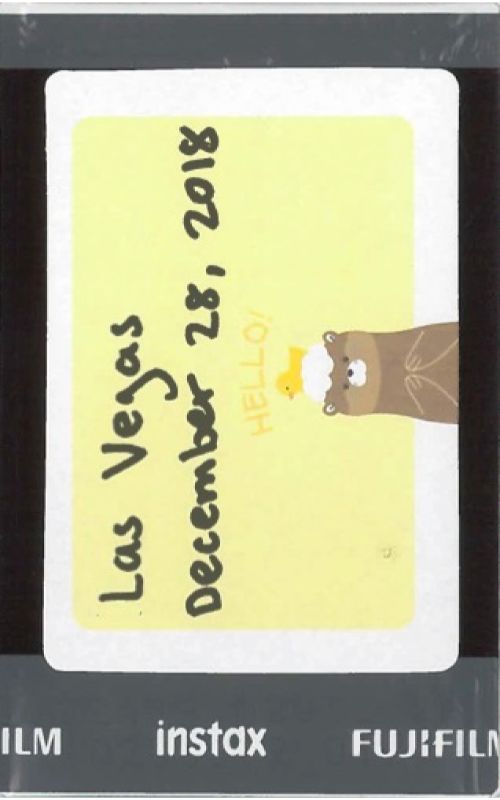 Las Vegas
December 28, 2018
HELLO!
ILM instax FUJIFILM